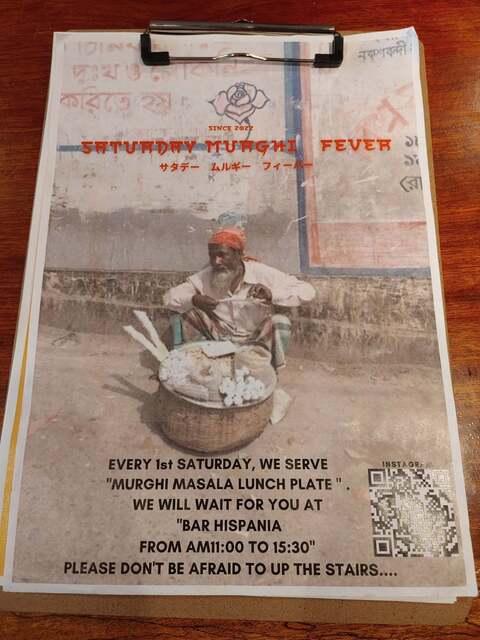 দুঃখ ও
করিতে হয়
SINCE 2022
SATURDAY MURGHI FEVER
サタデー ムルギー フィーバー
EVERY 1st SATURDAY, WE SERVE
"MURGHI MASALA LUNCH PLATE" .
WE WILL WAIT FOR YOU AT
"BAR HISPANIA
FROM AM11:00 TO 15:30"
PLEASE DON'T BE AFRAID TO UP THE STAIRS....
INSTAGRAM